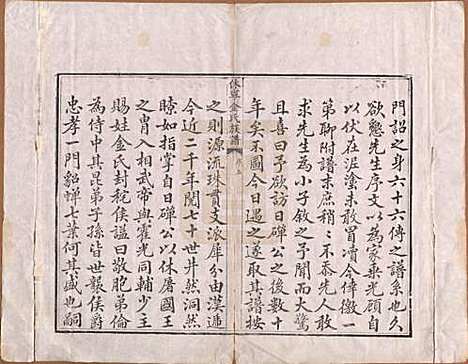 門詔之身六十六傳之譜系也久
欲懇先生序文以為家乘光顧自
以伏在泥塗未敢冒凟今倖徼一
第聊附譜末庶稍不忝先人敢
求先生為小子敘之予聞而大驚
且喜曰予欲訪日磾公之後數十
年矣不圖今日遇之遂取其譜按
休寧金氏族譜
之則源流珠貫支派犀分由漢逓
今近二千年閱七十世井然洞然
瞭如指掌自日磾公以休屠國王
之胄入相武帝與霍光同輔少主
賜姓金氏封秺侯謚曰敬胞弟倫
為侍中其昆弟子孫皆世報侯爵
忠孝一門貂蟬七葉何其盛也嗣